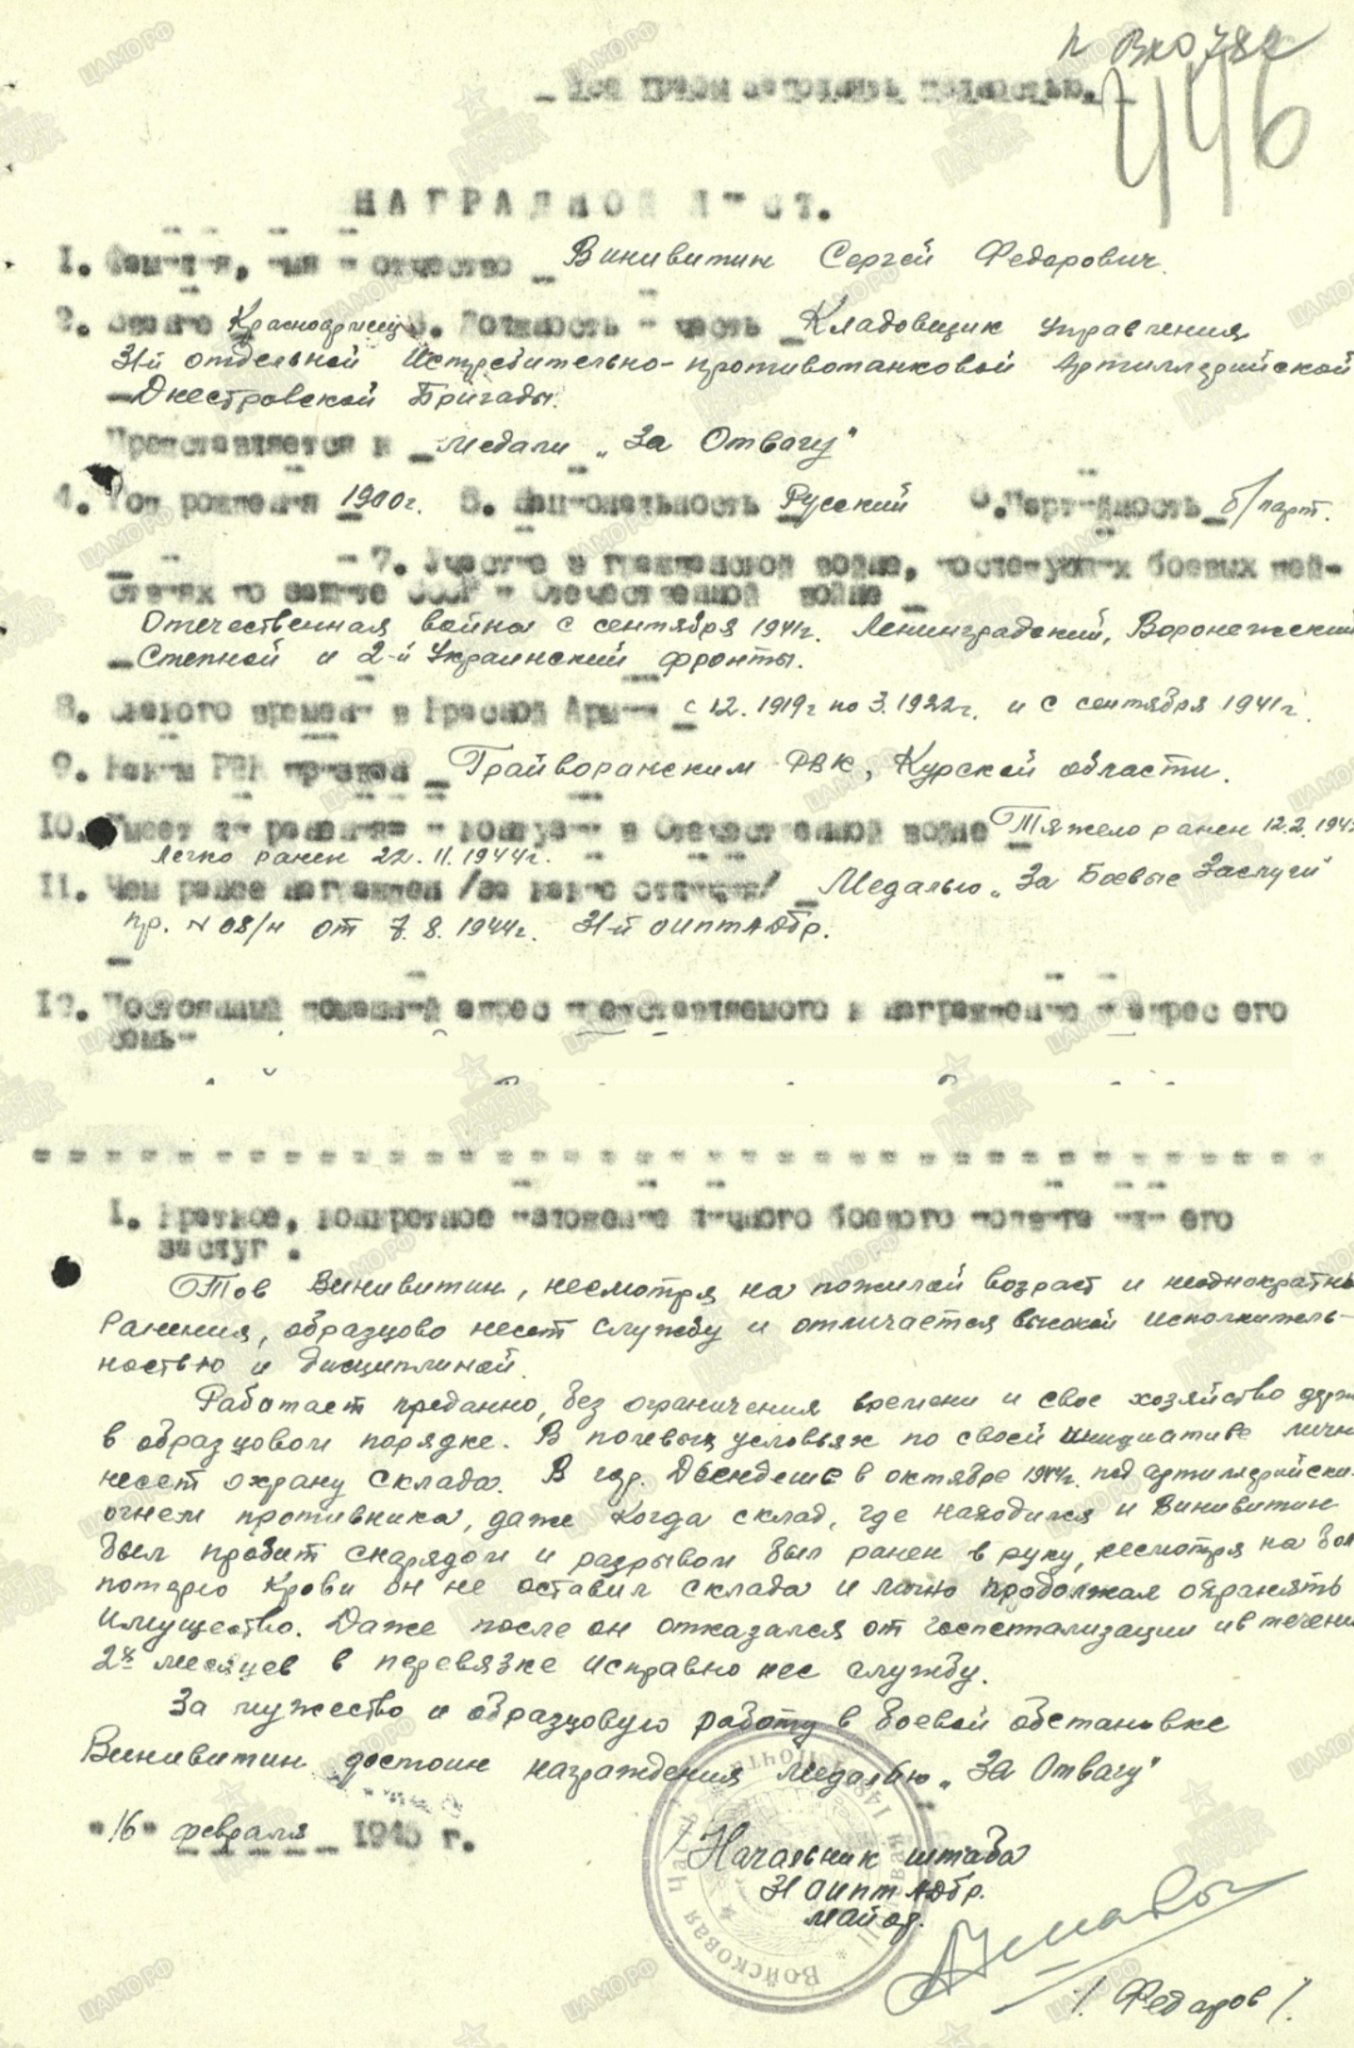 446
НАГРАДНОЙ ЛИСТ.
1. Фамилия, имя и отчество _ Винивитин Сергей Федорович.
2. Звание Красноармеец 3. Должность и часть _ Кладовщик Управления
31й отдельной Истребительно-противотанковой Артиллерийской
Днестровской Бригады.
Представляется к _ Медали „За Отвагу"
4. Год рождения 1900г. 5. Национальность Русский 6. Партийность _ б/парт.
7. Участие в гражданской войне, последующих боевых дей-
ствиях по защите СССР и Отечественной войне _
Отечественная война с сентября 1941г. Ленинградский, Воронежский
Степной и 2-й Украинский фронты.
8. С какого времени в Красной Армии _ с 12. 1919г по 3. 1922г. и с сентября 1941г.
9. Каким РВК призван _ Грайворанским РВК, Курской области.
10. Имеет ли ранения и контузии в Отечественной войне Тяжело ранен 12.2.
легко ранен 22. 11. 1944г.
11. Чем ранее награжден /за какие отличия/ _ Медалью „За Боевые Заслуги"
пр. N 08/н от 7. 8. 1944г. 31-й оиптАбр.
12. Постоянный домашний адрес представляемого к награждению и адрес его
семьи
1. Краткое, конкретное изложение личного боевого подвига или его
заслуг.
Тов Винивитин, несмотря на пожилой возраст и неоднократны
ранения, образцово несет службу и отличается высокой исполнитель-
ностью и дисциплиной.
Работает преданно, без ограничения времени и свое хозяйство держ
в образцовом порядке. В полевых условьях по своей инициативе личн
несет охрану склада. В гор. в октябре 1944г. под артиллерийски
огнем противника, даже когда склад, где находился и Винивитин
был пробит снарядом и разрывом был ранен в руку, несмотря на бол
потерю крови он не оставил склада и лично продолжал охранять
имущество. Даже после он отказался от госпетализации и в течени
2х месяцев в перевязке исправно нес службу.
За мужество и образцовую работу в боевой обстановке
Винивитин достоин награждения медалью „За Отвагу"
"16" февраля 1945 г.
Начальник штаба
31 оиптАбр.
майор.
/Федоров/.
Войсковая часть Полевая почта
ЦАМО РФ
ПАМЯТЬ НАРОДА